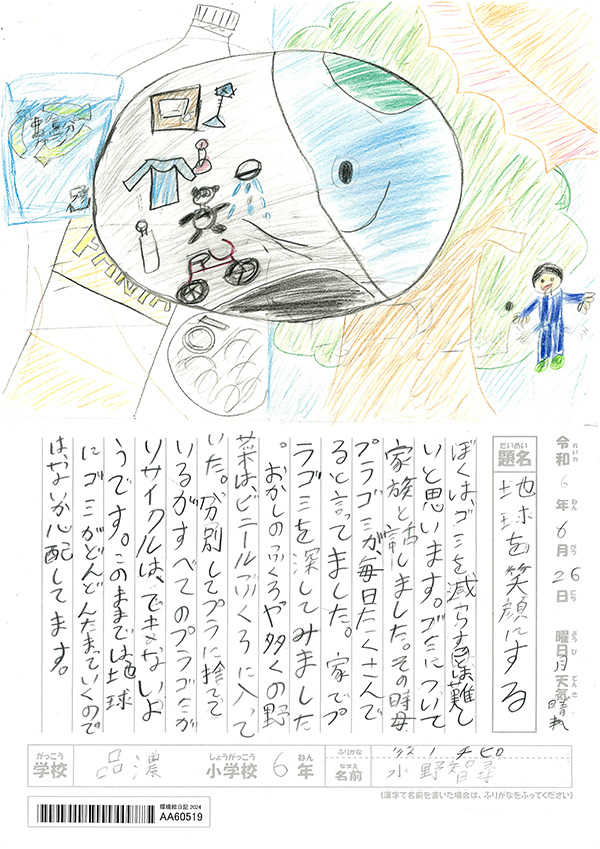 FANTA
令和6年6月26日 曜日月 天気晴れ
れいわ ねん がつ にち ようび てんき
だいめい
題名 地球を笑顔にする
ぼくは、ゴミを減らすのは難し
いと思います。ゴミについて
家族と話しました。その時母
プラゴミが毎日たくさんで
ると言ってました。家でプ
ラゴミを深してみました
。おかしのふくろや多くの野
菜は、ビニールぶくろに入って
いた。分別してプラに捨てて
いるがすべてのプラゴミが
リサイクルは、できないよ
うです。このままでは地球
にゴミがどんどんたまていくので
は、ないか心配してます。
がっこう しょうがっこう ねん ふりがな ミズノ チヒロ
学校 品濃 小学校 6年 なまえ 名前 水野智尋
(漢字で名前を書いた場合は、ふりがなをふってください)
環境絵日記 2024
AA60519